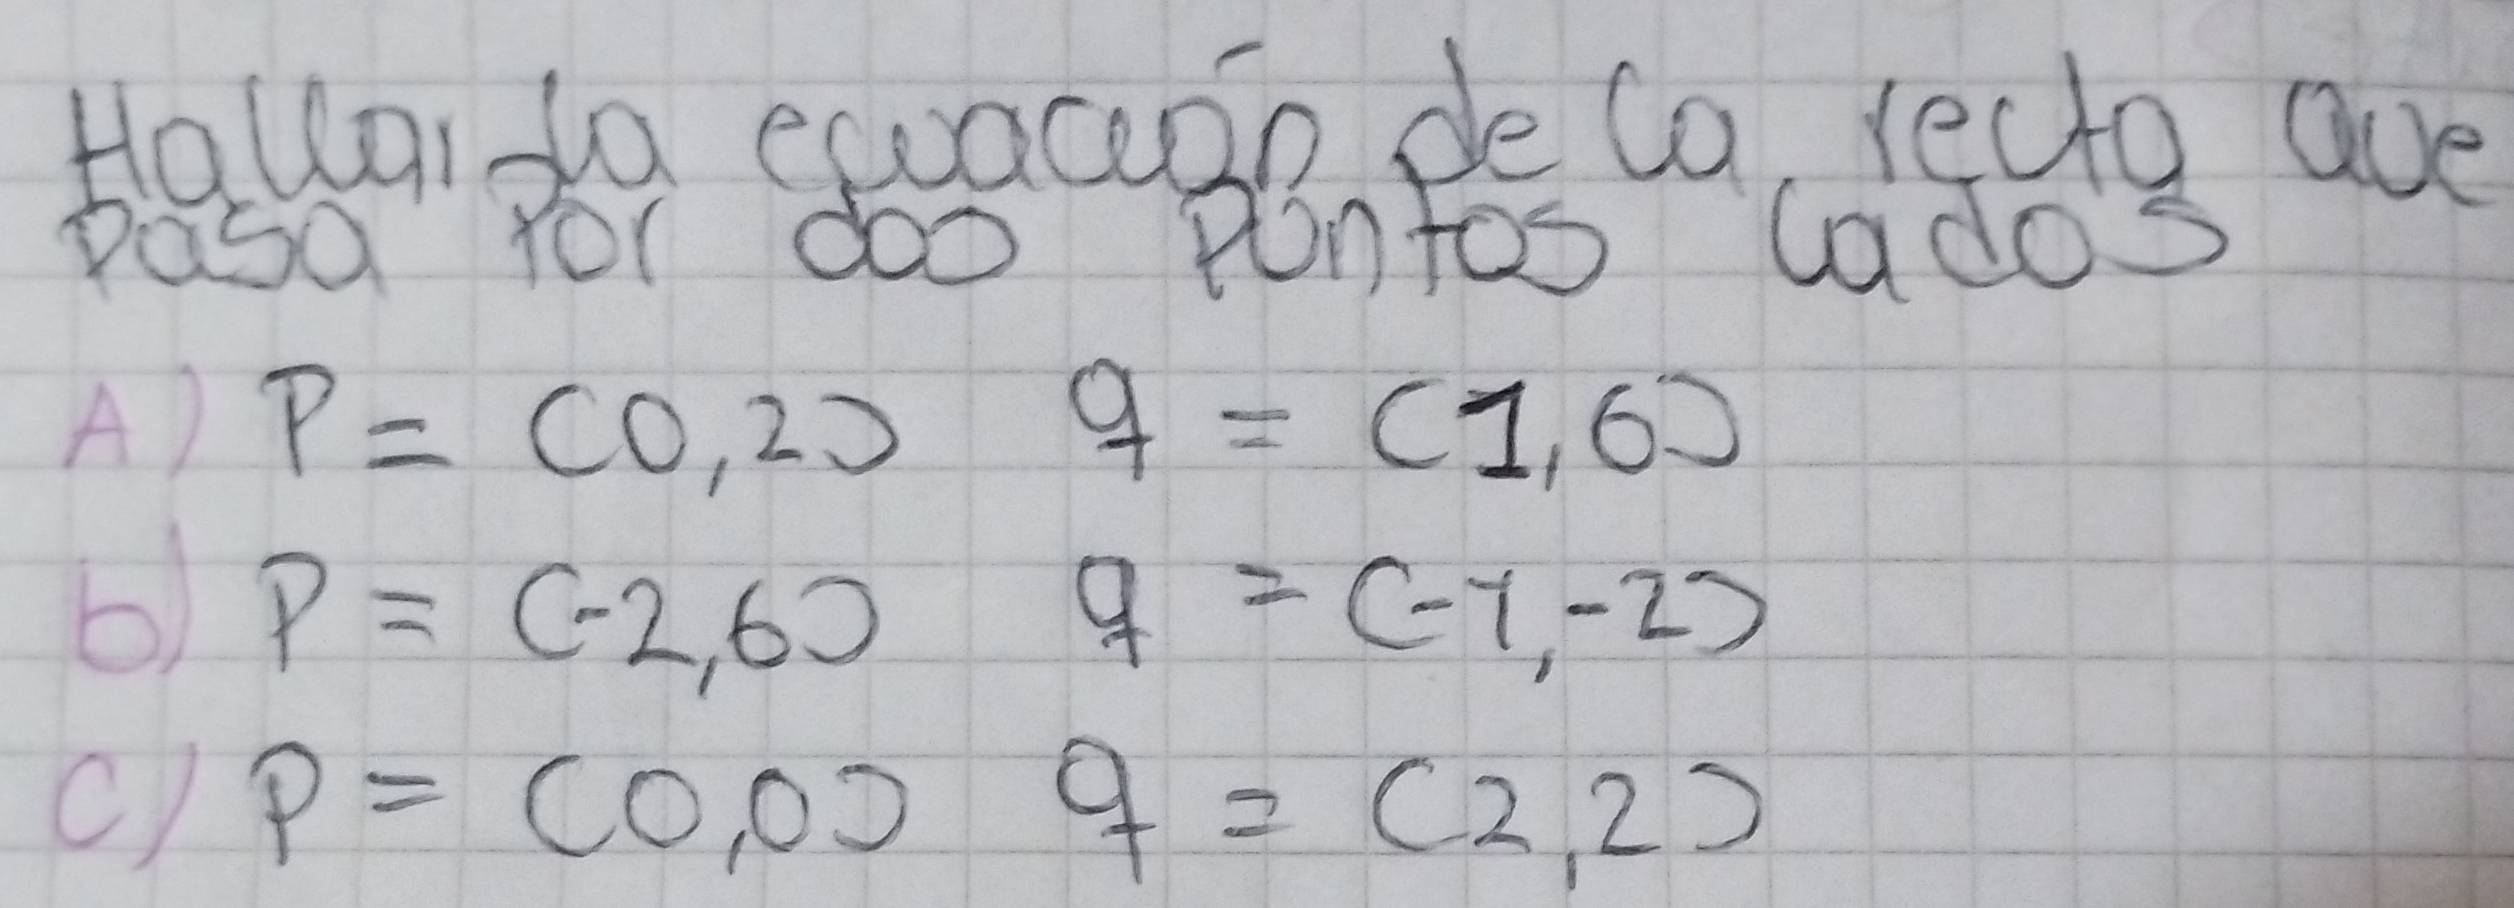 Hallar la ecuación de la recta que
pasa por dos puntos lados
A) P = (0,2) q = (1,6)
b) P = (-2,6) q = (-1,-2)
c) P = (0,0) q = (2,2)